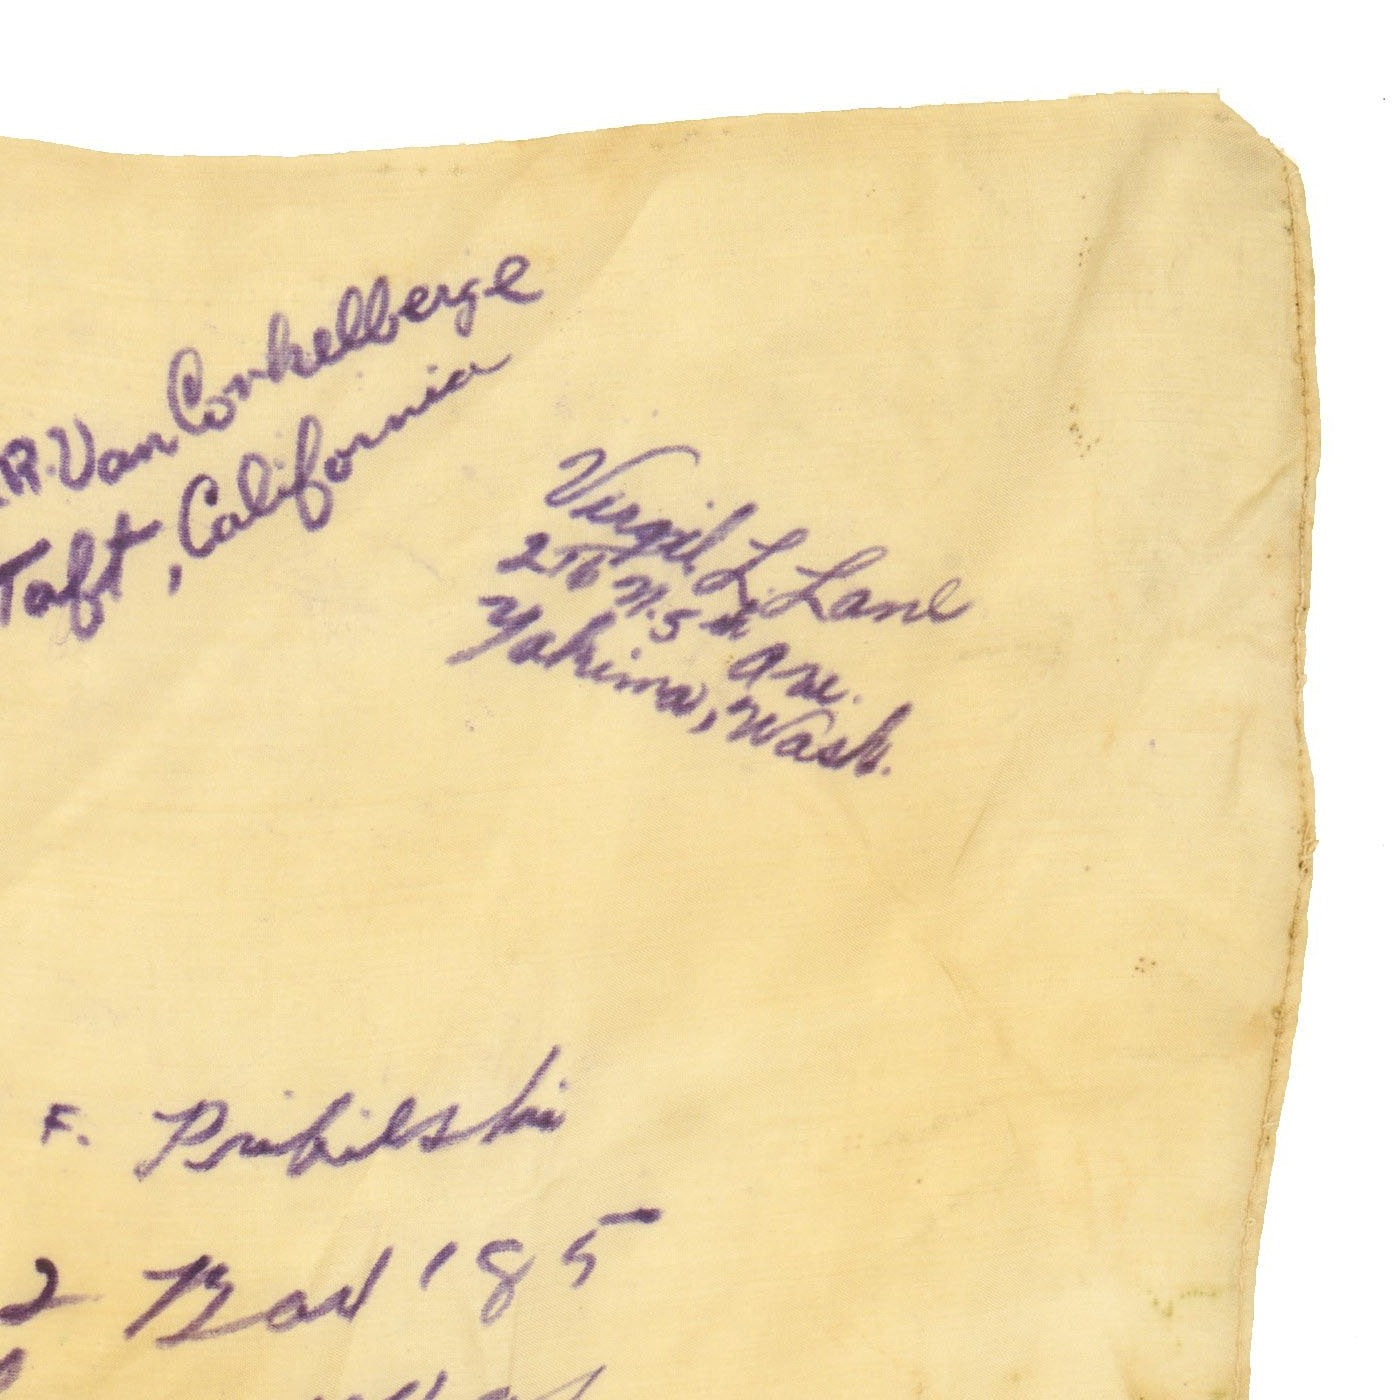 R. Van Conkelberge
Taft, California
Virgil L. Lane
N. 5th Ave.
Yakima, Wash.
F. Pribilski
2 Box '85